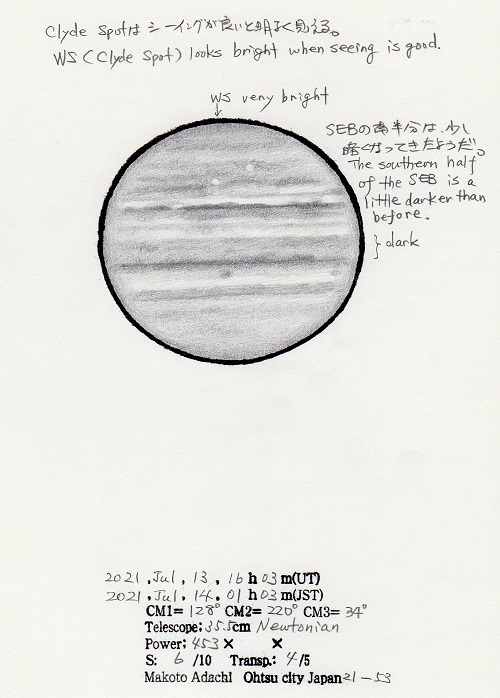 Clyde Spotはシーイングが良いと明るく見える。
WS (Clyde Spot) looks bright when seeing is good.
WS very bright
SEBの南半分は、少し
暗くなってきたようだ。
The southern half
of the SEB is a
little darker than
before.
} dark
2021, Jul, 13, 16 h 03 m(UT)
2021, Jul, 14, 01 h 03 m(JST)
CM1= 128° CM2= 220° CM3= 34°
Telescope: 35.5cm Newtonian
Power: 453 × ×
S: 6 /10 Transp.: 4/5
Makoto Adachi Ohtsu city Japan 21-53